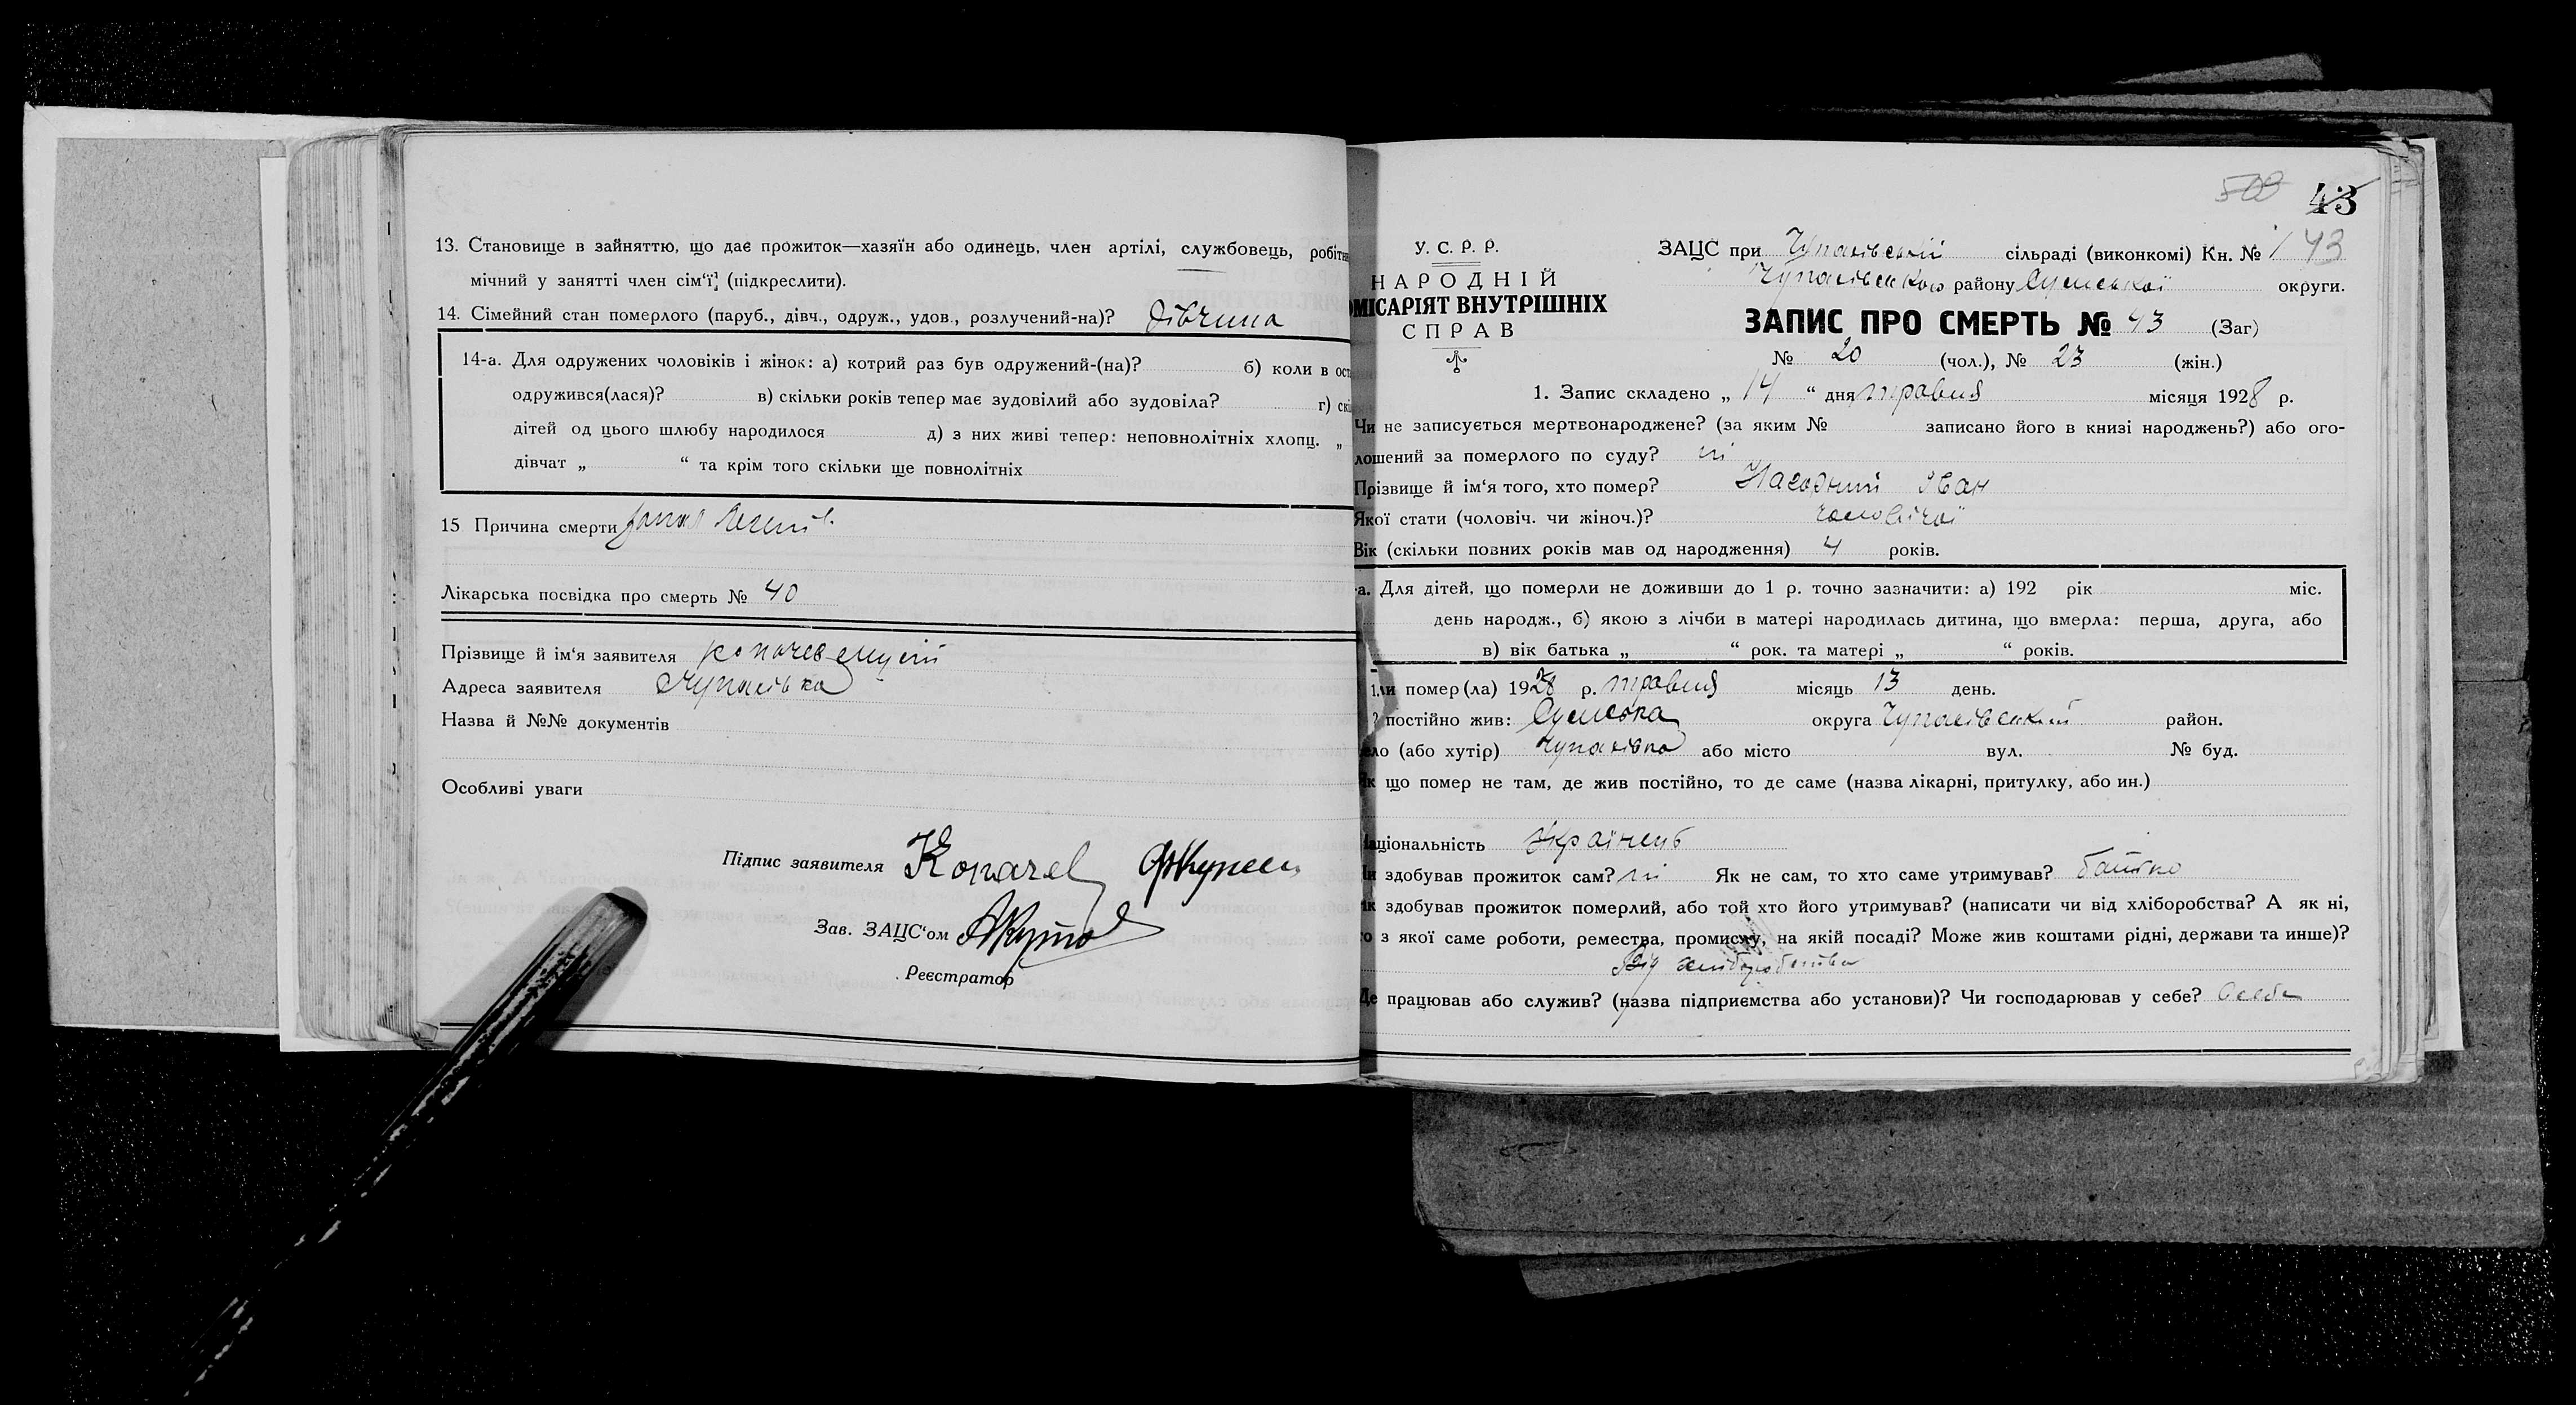 13. Становище в зайняттю, що дає прожиток—хазяїн або одинець, член артілі, службовець, робітн
мічний у занятті член сім'ї, (підкреслити).
14. Сімейний стан померлого (паруб., дівч., одруж., удов., розлучений-на)? дівчина
14-а. Для одружених чоловіків і жінок: а) котрий раз був одружений-(на)? б) коли в ост
одружився(лася)? в) скільки років тепер має зудовілий або зудовіла? г) скі
дітей од цього шлюбу народилося д) з них живі тепер: неповнолітніх хлопц. „
дівчат „ “ та крім того скільки ще повнолітніх
15 Причина смерти
Лікарська посвідка про смерть № 40
Прізвище й ім'я заявителя
Адреса заявителя Чупахівка
Назва й №№ документів
Особливі уваги
Підпис заявителя
Зав. ЗАЦС'ом
Реєстратор
43
У. С. Р. Р.
НАРОДНІЙ
ОМІСАРІЯТ ВНУТРІШНІХ
СПРАВ
ЗАЦС при Чупахівській сільраді (виконкомі) Кн. № 1 43
Чупахівського району Сумської округи.
ЗАПИС ПРО СМЕРТЬ № 43 (Заг)
№ 20 (чол.), № 23 (жін.)
1. Запис складено „ 14 “ дня травня місяця 1928 р.
Чи не записується мертвонароджене? (за яким № записано його в книзі народжень?) або ого-
лошений за померлого по суду? ні
Прізвище й ім'я того, хто помер? Нагорний Іван
Якої стати (чоловіч. чи жіноч.)? чоловічої
Вік (скільки повних років мав од народження) 4 років.
а. Для дітей, що померли не доживши до 1 р. точно зазначити: а) 192 рік міс.
день народж., б) якою з лічби в матері народилась дитина, що вмерла: перша, друга, або
в) вік батька „ “ рок. та матері „ “ років.
ли помер(ла) 1928 р. травня місяць 13 день.
постійно жив: Сумська округа Чупахівський район.
ело (або хутір) Чупахівка або місто вул. № буд.
Як що помер не там, де жив постійно, то де саме (назва лікарні, притулку, або ин.)
аціональність Українець
и здобував прожиток сам? ні Як не сам, то хто саме утримував? батько
ік здобував прожиток померлий, або той хто його утримував? (написати чи від хліборобства? А як ні,
о з якої саме роботи, ремества, промислу, на якій посаді? Може жив коштами рідні, держави та инше)?
Від хліборобства
Де працював або служив? (назва підприємства або установи)? Чи господарював у себе? Всебе